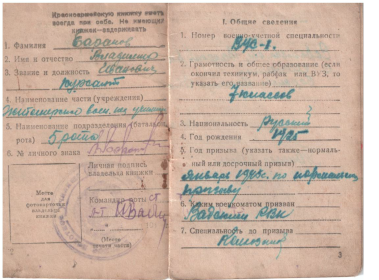 Красноармейскую книжку иметь
всегда при себе. Не имеющих
книжек—задерживать
1. Фамилия
2. Имя и отчество Владимир
Иванович
3. Звание и должность Курсант
1. Наименование части (учреждения)
5. Наименование подразделения (батальон,
рота) 5 рота
6. № личного знака
Место
для
фотокарточки
владельца
книжки
Личная подпись
владельца книжки
Командир роты
(Место
печати части)
I. Общие сведения
1. Номер военно-учетной специальности
ВУС-1.
2. Грамотность и общее образование (если
окончил техникум, рабфак или ВУЗ, то
указать его название)
7 классов
3. Национальность Русский
4. Год рождения 1925
5. Год призыва (указать также—нормаль-
ный или досрочный призыв)
Январь 1943г. по нормальному
призыву
6. Каким военкоматом призван
РВК
7. Специальность до призыва
3